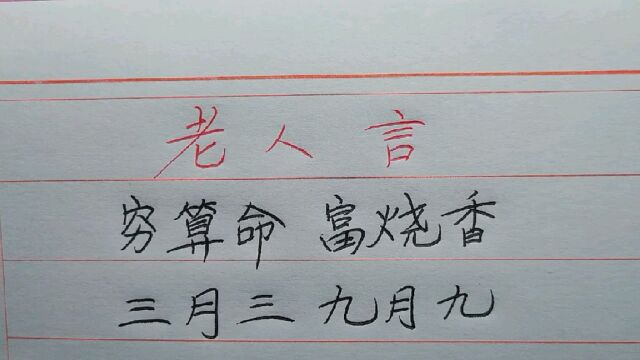 老人言
穷算命 富烧香
三月三 九月九